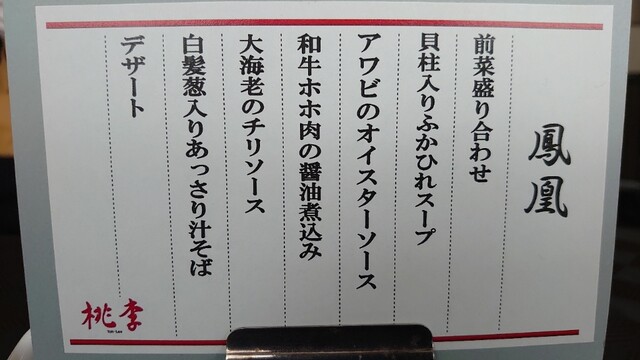 鳳凰
前菜盛り合わせ
貝柱入りふかひれスープ
アワビのオイスターソース
和牛ホホ肉の醤油煮込み
大海老のチリソース
白髪葱入りあっさり汁そば
デザート
桃李